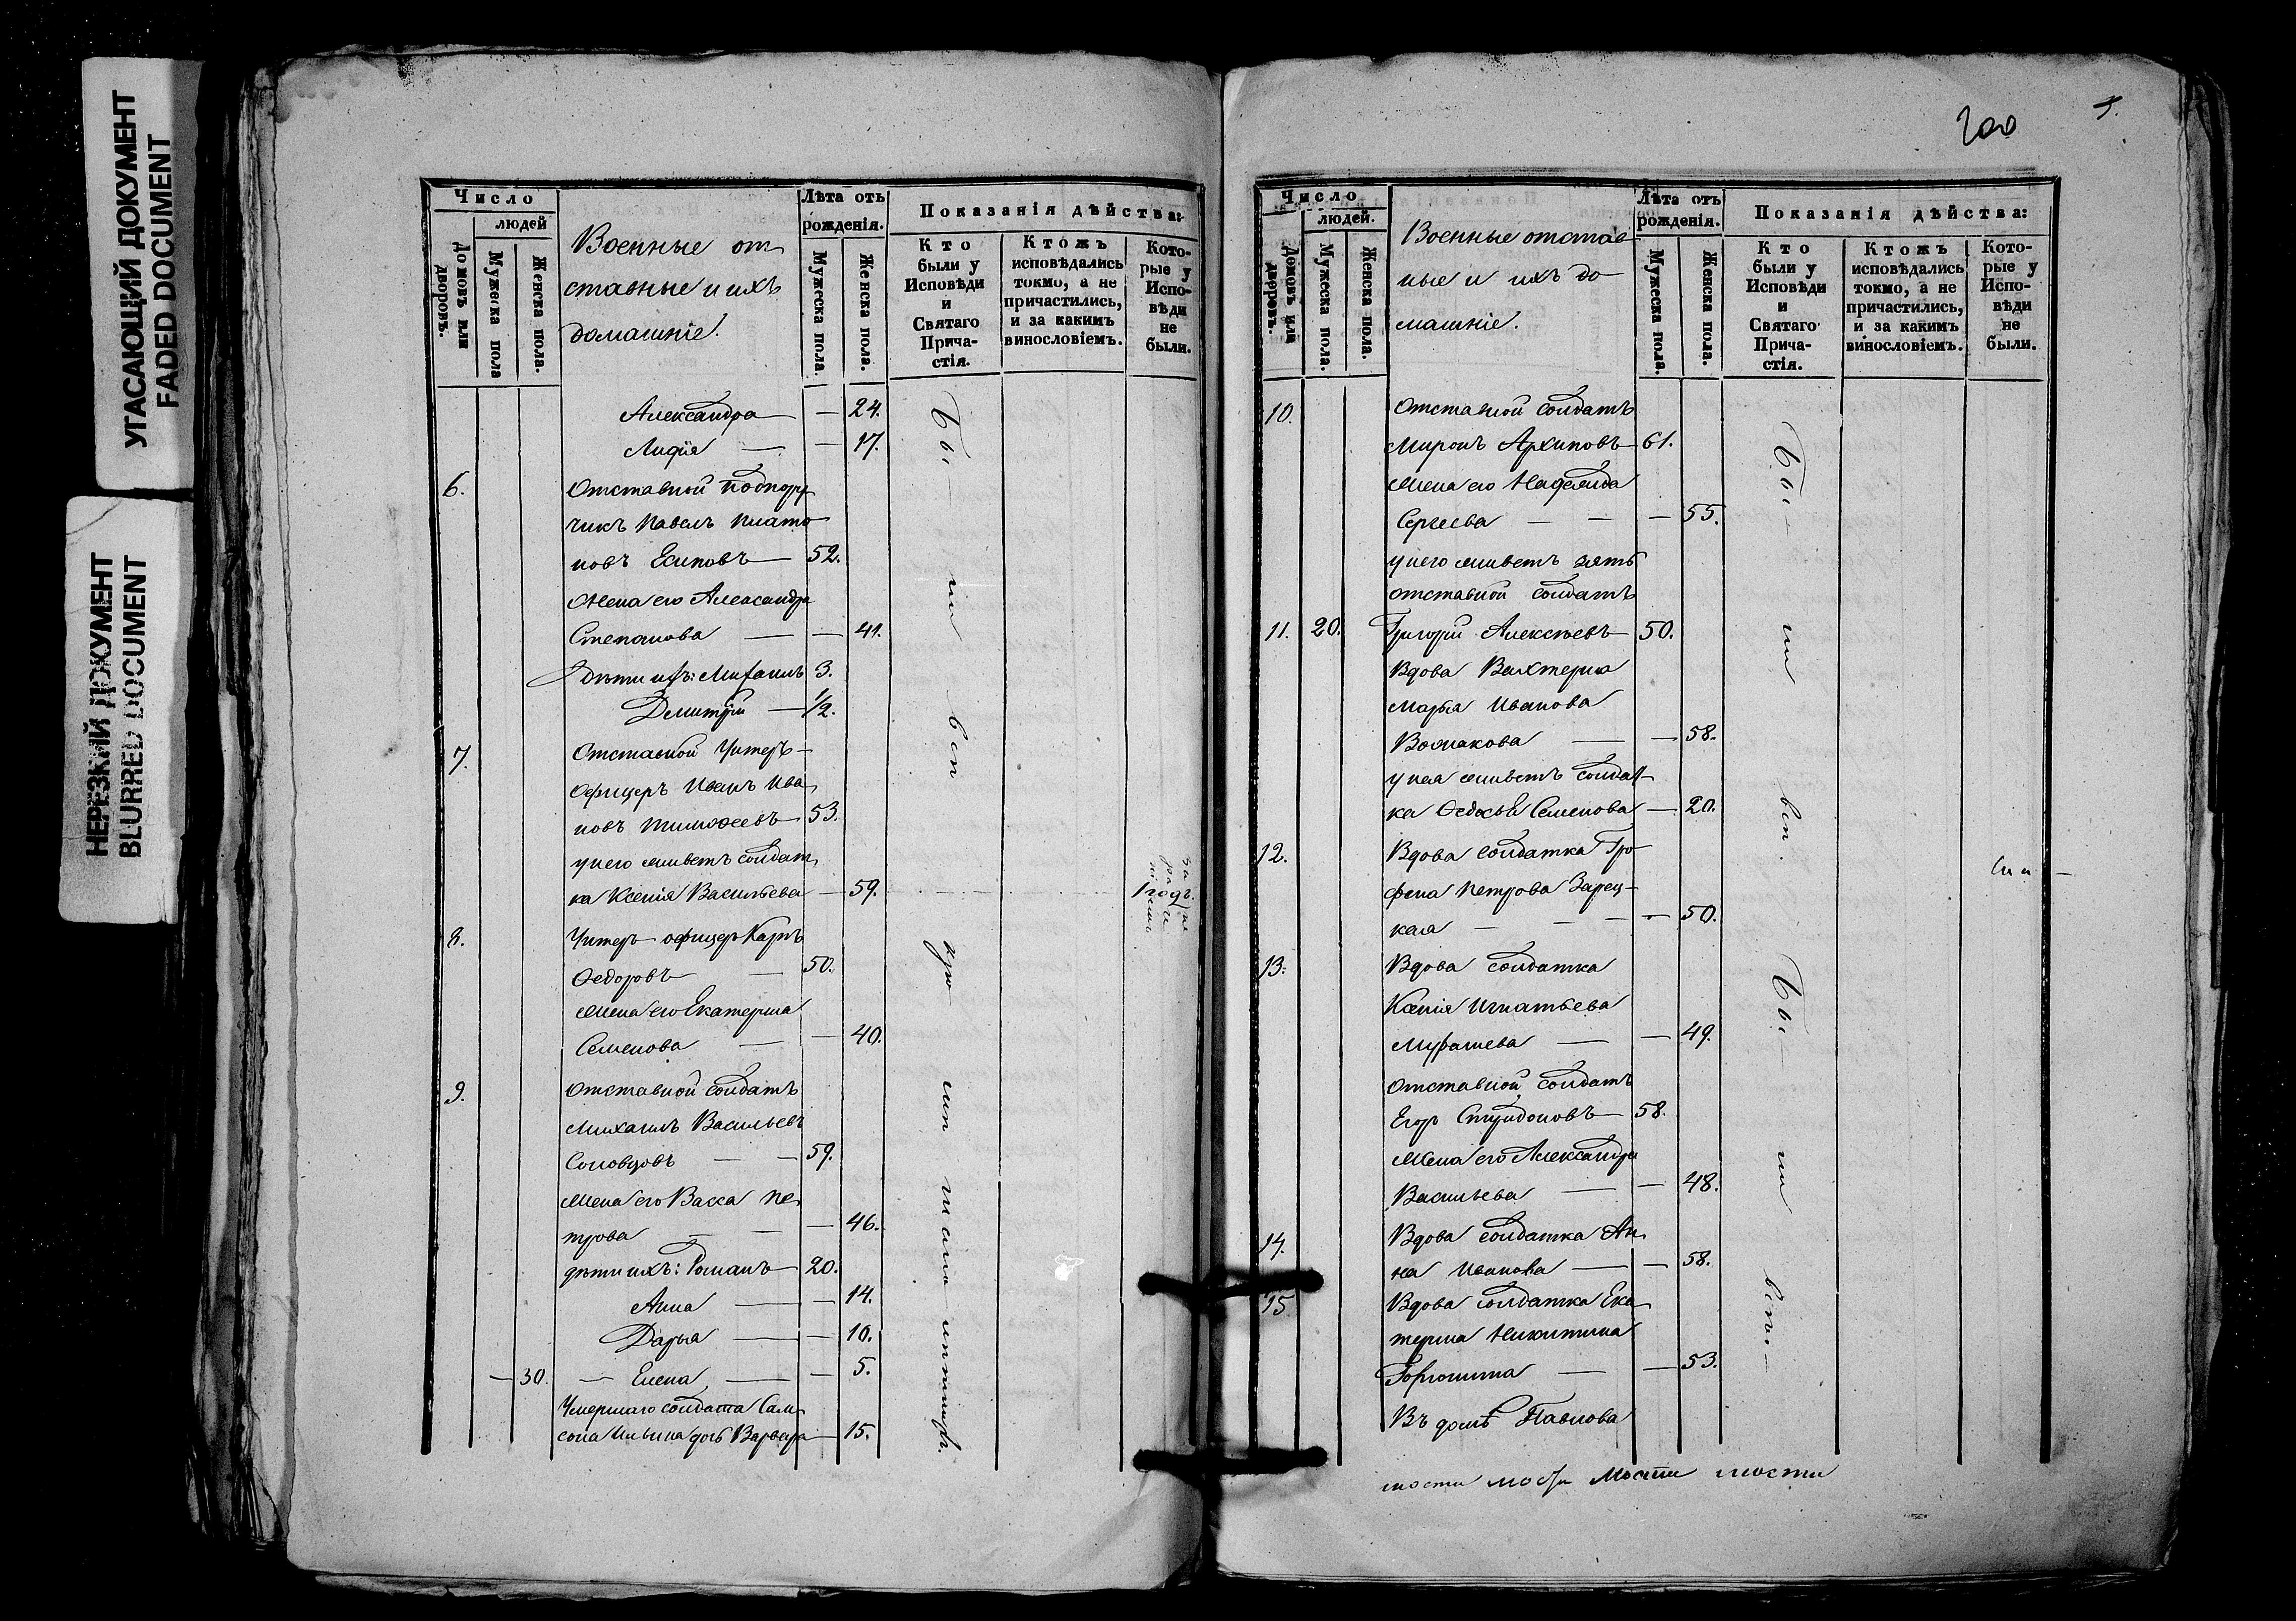 УГАСАЮЩИЙ ДОКУМЕНТ
FADED DOCUMENT
НЕРЕЗКИЙ ДОКУМЕНТ
BLURRED DOCUMENT
Число
людей
домовъ или дворовъ.
Мужеска пола
Женска пола.
Военные от
ставные и ихъ
домашніе.
Лѣта отъ
рожденія.
Мужеска пола.
Женска пола.
Показанія дѣйства:
Кто
были у
Исповѣди
и
Святаго
Прича-
стія.
Ктожъ
исповѣдались
токмо, а не
причастились,
и за какимъ
винословіемъ.
Кото-
рые у
Испо-
вѣди
не
были.
Александра — — 24.
Лидія — — 17.
6. Отставной подпору
чикъ Павелъ Плато
новъ Есиповъ — 52.
Жена его Александра
Степанова — — 41.
Дѣти ихъ: Михаилъ 3.
Димитрій — 1/2.
7. Отставной Унтеръ-
Офицеръ Иванъ Ива
новъ Тимоѳеевъ — 53.
у него живетъ солдат
ка Ксенія Васильева — 59.
8. Унтеръ-офицеръ Карпъ
Ѳедоровъ — 50.
Жена его Екатерина
Семенова — — 40.
9. Отставной солдатъ
Михаилъ Васильевъ
Соловцовъ — — 59.
Жена его Васса Пе
трова — — — 46.
дѣти ихъ: Романъ — 20.
Анна — — 14.
Дарья — — 10.
— 30. — Елена — — 5.
Умершаго солдата Сам
сона Ильина дочь Варвара — 15.
Бы ли вси
200
Число
людей.
Домовъ или дворовъ.
Мужеска пола.
Женска пола.
Военные отстав
ные и ихъ до
машніе.
Лѣта отъ
рожденія.
Мужеска пола.
Женска пола.
Показанія дѣйства:
Кто
были у
Исповѣди
и
Святаго
Прича-
стія.
Ктожъ
исповѣдались
токмо, а не
причастились,
и за какимъ
винословіемъ.
Кото-
рые у
Испо-
вѣди
не
были.
10. Отставной солдатъ
Миронъ Архиповъ — 61.
Жена его Надежда
Сергеева — — — 55.
у него живетъ зять
отставной солдатъ
11. 20. Григорій Алексѣевъ — 50.
Вдова Вахтера
Марья Иванова
— — 58.
у нея живетъ солдат-
ка Ѳедосья Семенова — 20.
12. Вдова солдатка Гро
фена Петрова Зарец-
кая — — — 50.
13. Вдова солдатка
Ксенія Игнатьева
— — 49.
Отставной солдатъ
Егоръ Спиридоновъ — 58.
Жена его Александра
Васильева — — 48.
14. Вдова солдатка Ан
на Иванова — — 58.
15. Вдова солдатка Ека
терина Никитина
— — 53.
Въ домѣ Павлова
Бы ли вси
Бы ли вси
мости мости мости мости